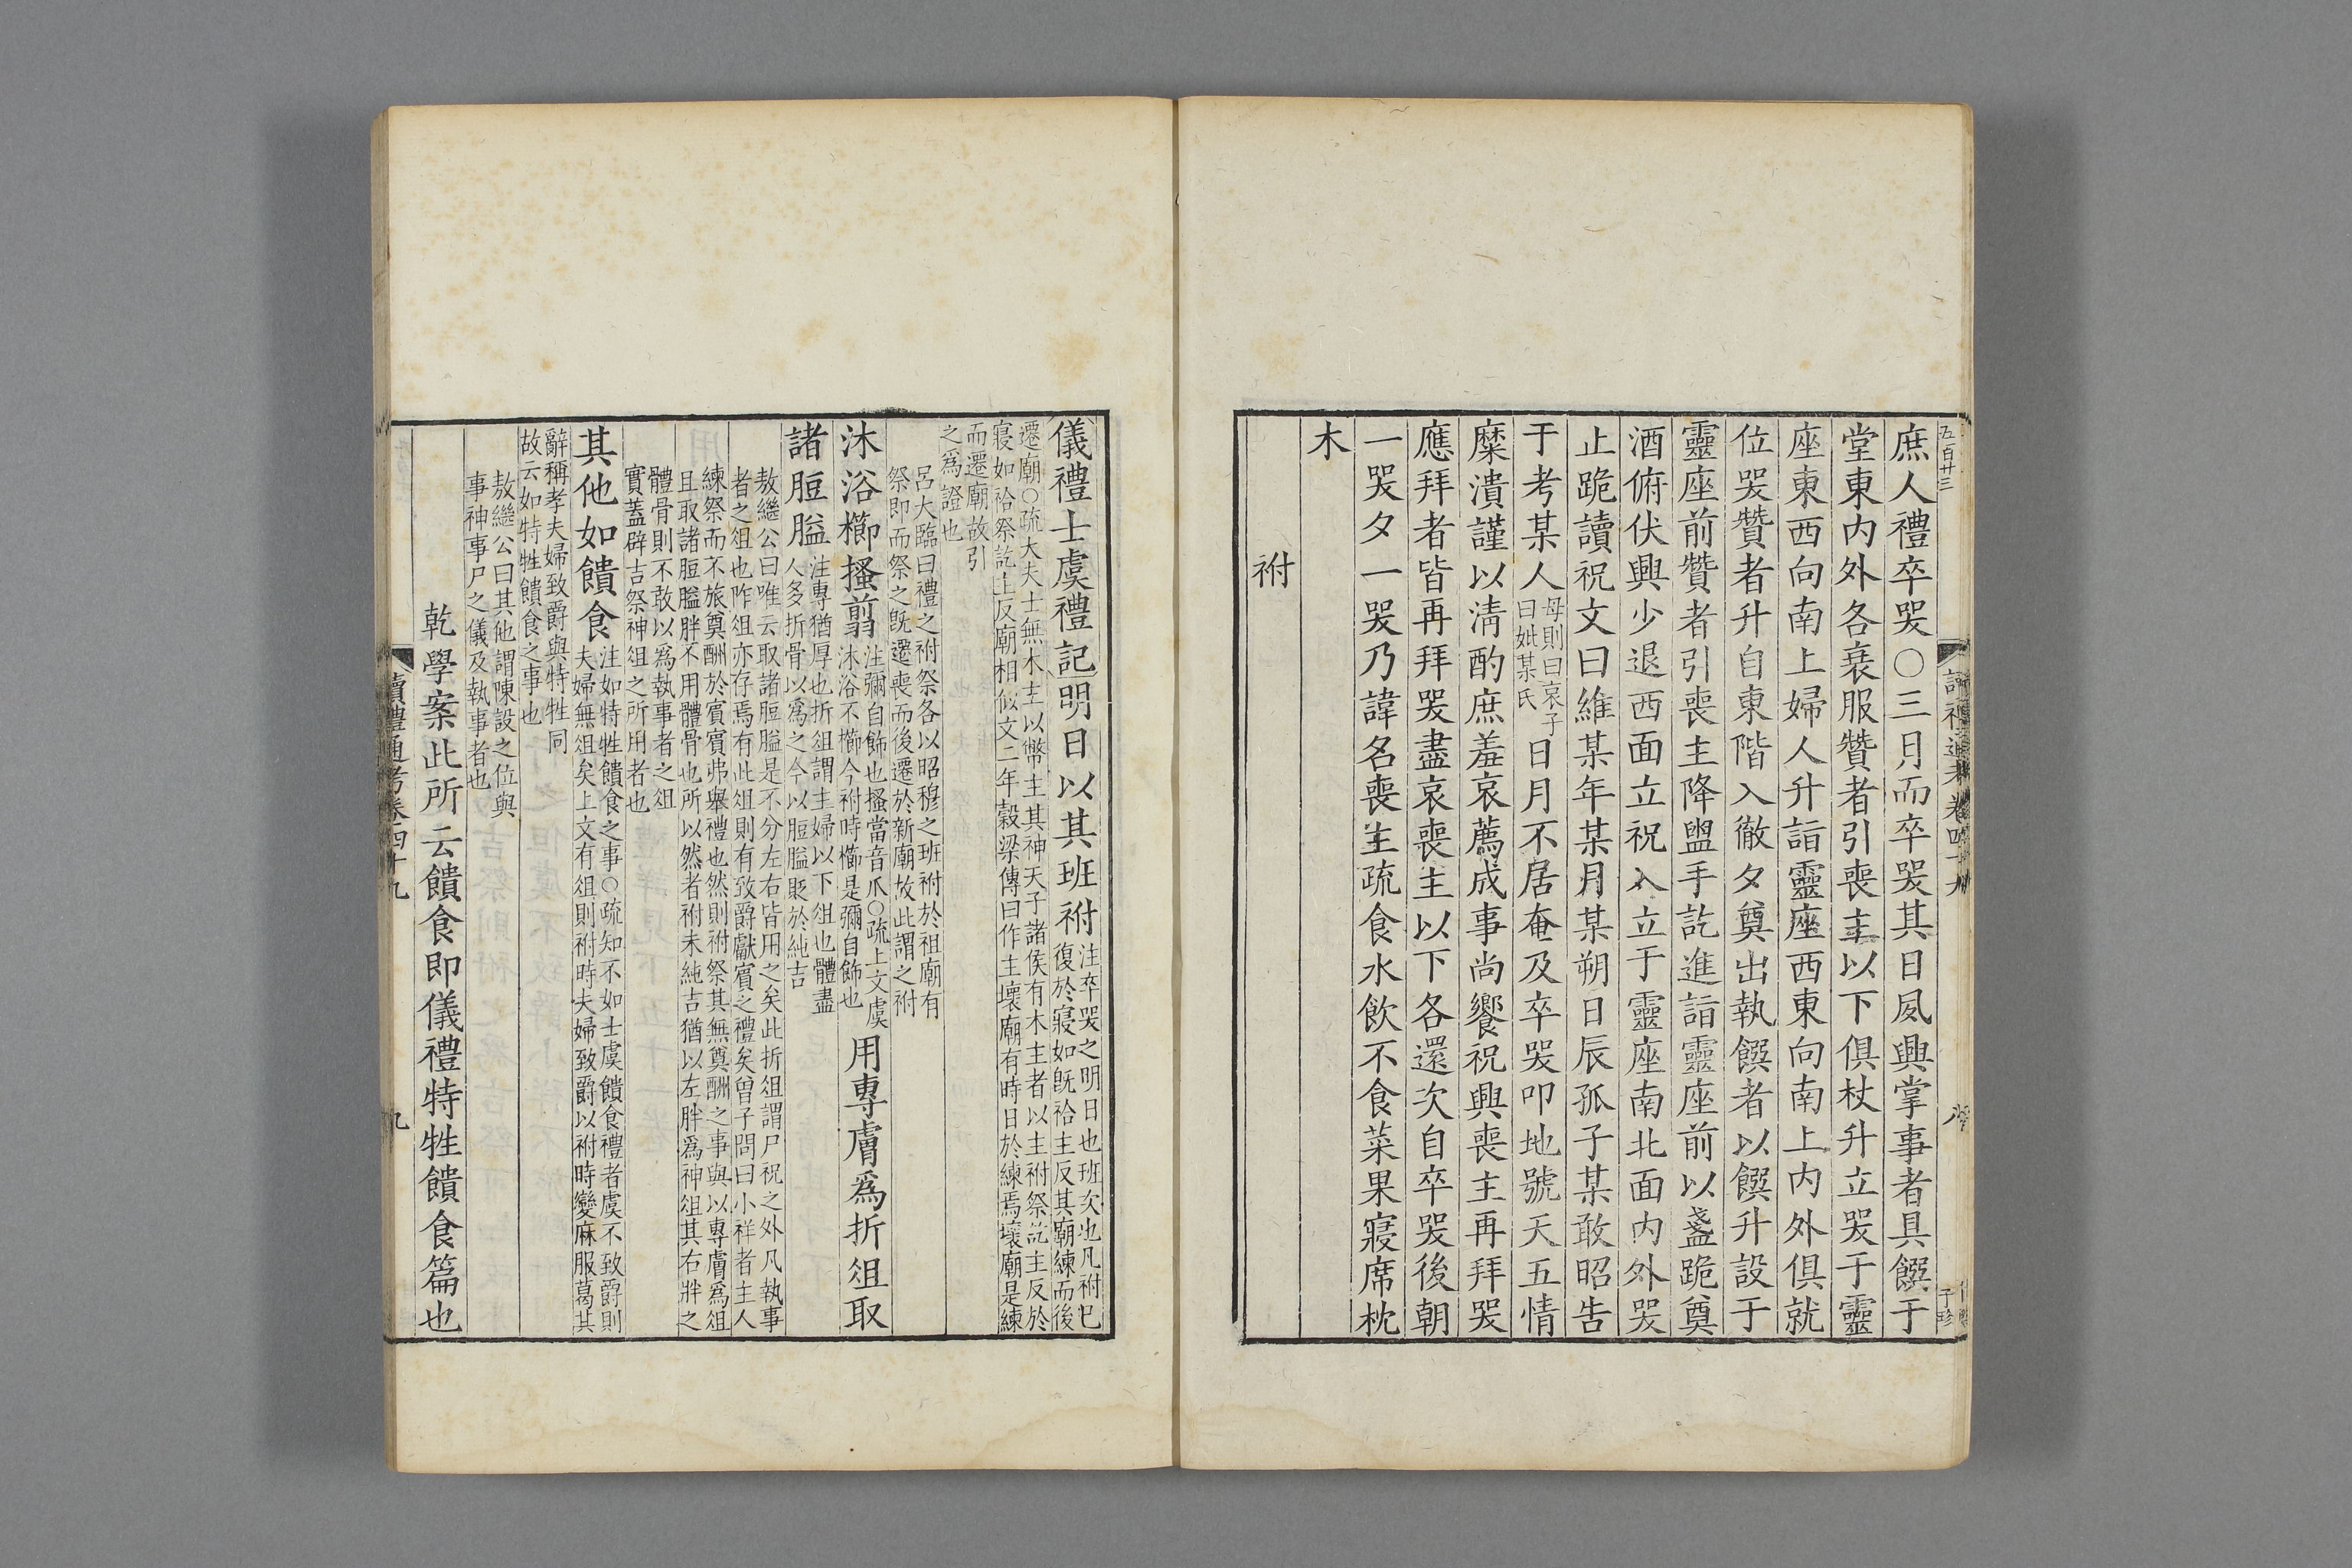 五百廿三
庶人禮卒哭〇三月而卒哭其日夙興掌事者具饌于
堂東内外各衰服贊者引喪主以下俱杖升立哭于靈
座東西向南上婦人升詣靈座西東向南上内外俱就
位哭贊者升自東階入徹夕奠出執饌者以饌升設于
靈座前贊者引喪主降盥手訖進詣靈座前以盞跪奠
酒俯伏興少退西面立祝入立于靈座南北面内外哭
止跪讀祝文曰維某年某月某朔日辰孤子某敢昭告
于考某人母則曰哀子曰妣某氏日月不居奄及卒哭叩地號天五情
糜潰謹以清酌庶羞哀薦成事尚饗祝興喪主再拜哭
應拜者皆再拜哭盡哀喪主以下各還次自卒哭後朝
一哭夕一哭乃諱名喪主疏食水飲不食菜果寢席枕
木
祔
儀禮士虞禮記明日以其班祔注卒哭之明日也班次也凡祔已復於寢如既祫主反其廟練而後
遷廟〇疏大夫士無木主以幣主其神天子諸侯有木主者以主祔祭訖主反於
寢如祫祭訖主反廟相似文二年穀梁傳曰作主壞廟有時日於練焉壞廟是練
而遷廟故引
之為證也
呂大臨曰禮之祔祭各以昭穆之班祔於祖廟有
祭即而祭之既遷喪而後遷於新廟故此謂之祔
沐浴櫛搔翦注彌自飾也搔當音爪〇疏上文虞沐浴不櫛今祔時櫛是彌自飾也用專膚為折俎取
諸脰膉注專猶厚也折俎謂主婦以下俎也體盡人多折骨以為之今以脰膉貶於純吉
敖繼公曰唯云取諸脰膉是不分左右皆用之矣此折俎謂尸祝之外凡執事
者之俎也昨俎亦存焉有此俎則有致爵獻賓之禮矣曾子問曰小祥者主人
練祭而不旅奠酬於賓賓弗舉禮也然則祔祭其無奠酬之事與以專膚為俎
且取諸脰膉胖不用體骨也所以然者祔未純吉猶以左胖為神俎其右胖之
體骨則不敢以為執事者之俎
實蓋辟吉祭神俎之所用者也
其他如饋食注如特牲饋食之事〇疏知不如士虞饋食禮者虞不致爵則夫婦無俎矣上文有俎則祔時夫婦致爵以祔時變麻服葛其
辭稱孝夫婦致爵與特牲同
故云如特牲饋食之事也
敖繼公曰其他謂陳設之位與
事神事尸之儀及執事者也
乾學案此所云饋食即儀禮特牲饋食篇也
讀禮通考卷四十九
九